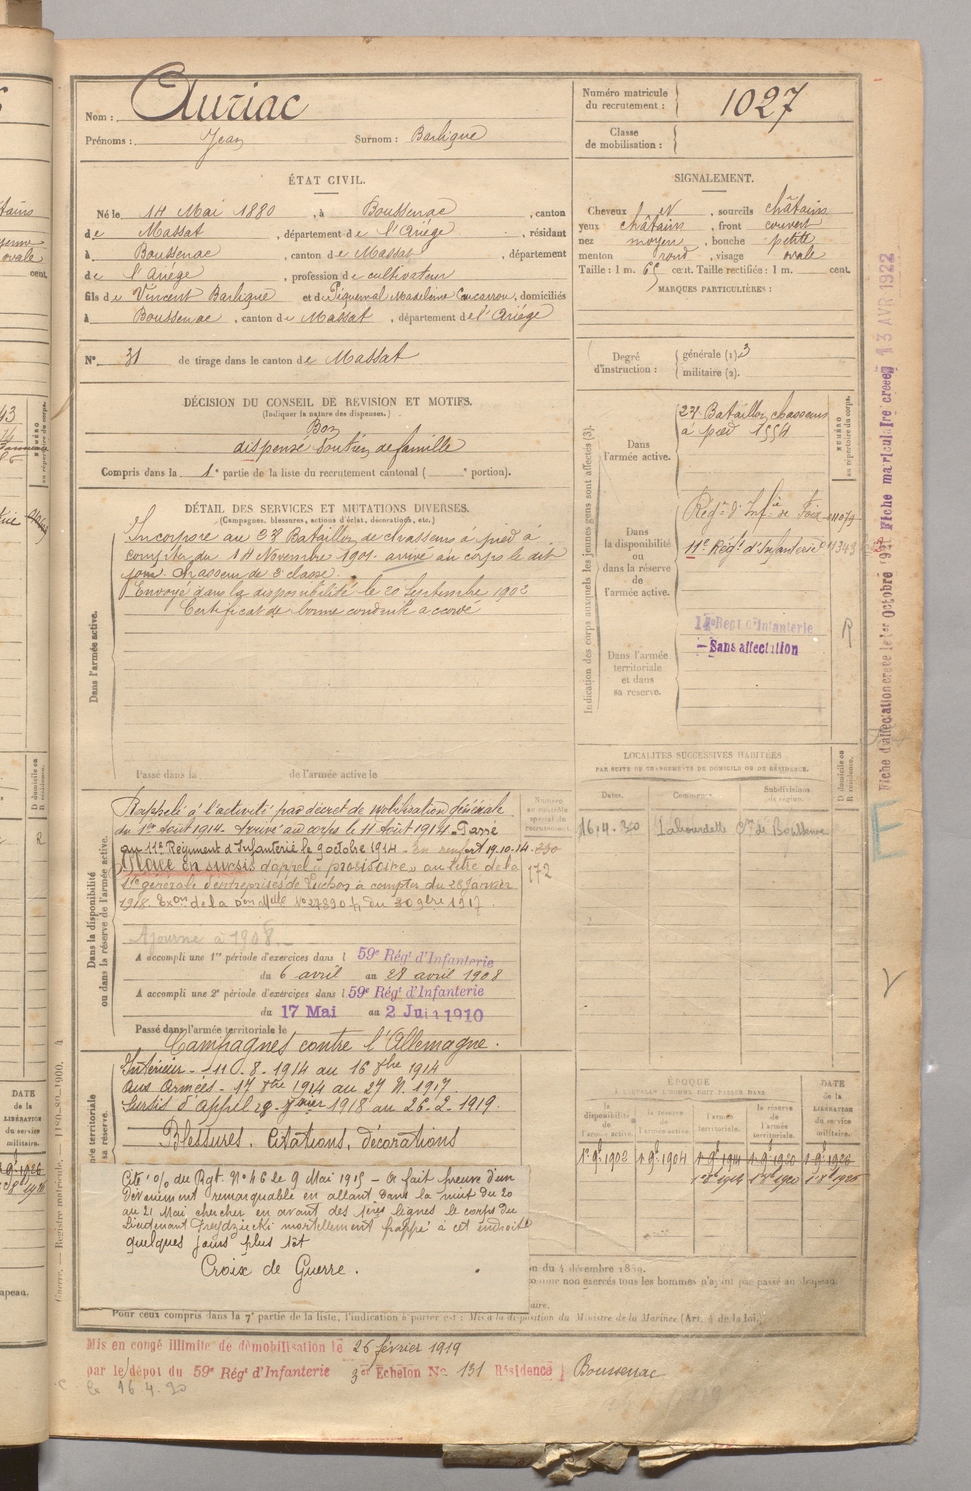 Nom : Auriac
Prénoms : Jean Surnom : Barligue
Numéro matricule du recrutement : 1027
Classe de mobilisation :
ÉTAT CIVIL.
Né le 14 Mai 1880, à Boussenac, canton
de Massat, département de l'Ariège, résidant
à Boussenac, canton de Massat, département
de l'Ariége, profession de cultivateur
fils de Vincent Barligue et de Piquemal Madeleine, domiciliés
à Boussenac, canton de Massat, département de l'Ariége
N° 31 de tirage dans le canton de Massat
SIGNALEMENT.
Cheveux et, sourcils châtains
yeux châtains, front couvert
nez moyen, bouche petite
menton rond, visage ovale
Taille : 1 m. 65 cent. Taille rectifiée : 1 m. cent.
MARQUES PARTICULIÈRES :
Degré d'instruction : générale (1) 3
militaire (2).
DÉCISION DU CONSEIL DE RÉVISION ET MOTIFS.
(Indiquer la nature des dispenses.)
Bon
dispensé Soutien de famille
Compris dans la 1e partie de la liste du recrutement cantonal ( e portion).
DÉTAIL DES SERVICES ET MUTATIONS DIVERSES.
(Campagnes, blessures, actions d'éclat, décorations, etc.)
Dans l'armée active.
Incorporé au Bataillon de chasseurs à pied à
compter du 14 Novembre 1901. arrivé au corps le dit
jour. Chasseur de 2e classe.
Envoyé dans la disponibilité le 20 Septembre 1902
Certificat de bonne conduite accordé
Passé dans la de l'armée active le
Indication des corps auxquels les jeunes gens sont affectés (3).
Dans l'armée active.
Bataillon chasseurs
à pied 1554
NUMÉRO au répertoire du corps.
Dans la disponibilité ou dans la réserve de l'armée active.
Régt d'Infie de Foix
11e Régt d'Infanterie
Dans l'armée territoriale et dans sa réserve.
Regt d'Infanterie
Sans affectation
R
Fiche matriculaire créée 13 AVR 1922
LOCALITÉS SUCCESSIVES HABITÉES
PAR SUITE DE CHANGEMENTS DE DOMICILE OU DE RÉSIDENCE.
Dates. Communes. Subdivisions de région. D domicile ou R résidence.
Labourdette Cne de Boussenac
Dans la disponibilité ou dans la réserve de l'armée active.
Rappelé à l'activité par décret de mobilisation générale
du 1er Août 1914. Arrivé au corps le 11 Août 1914. Passé
au 11e Régiment d'Infanterie le 9 octobre 1914. En renfort 19.10.14.
Placé en sursis d'appel au titre de la
Sté générale d'entreprises de Luchon à compter du 28 Janvier
1918.
172
Ajourné à 1908.
A accompli une 1re période d'exercices dans l 59e Régt d'Infanterie
du 6 avril au 28 avril 1908
A accompli une 2e période d'exercices dans l 59e Régt d'Infanterie
du 17 Mai au 2 Juin 1910
Passé dans l'armée territoriale le
Campagnes contre l'Allemagne.
Intérieur - 11.8.1914 au 16 8bre 1914
Aux Armées - 17 8bre 1914 au 27.11.1917
Sursis d'appel 28 Janvier 1918 au 26.2.1919.
Blessures, citations, décorations
Cité o/o du Rgt. N° 46 le 9 Mai 1915 - A fait preuve d'un
dévouement remarquable en allant dans la nuit du 20
au 21 Mai chercher en avant des 1ères lignes le corps du
Lieutenant mortellement frappé à cet endroit
quelques jours plus tôt
Croix de Guerre.
ÉPOQUE
À LAQUELLE L'HOMME DOIT PASSER DANS
la disponibilité de l'armée active. la réserve de l'armée active. l'armée territoriale. la réserve de l'armée territoriale.
DATE de la LIBÉRATION du service militaire.
1er 9bre 1902 1 9bre 1904
Pour ceux compris dans la 7e partie de la liste, l'indication à porter est : Mis à la disposition du Ministre de la Marine (Art. 4 de la loi.)
Mis en congé illimité de démobilisation le 26 février 1919
par le dépôt du 59e Régt d'Infanterie 3er Échelon No 131 Résidence Boussenac
le 16.4.20